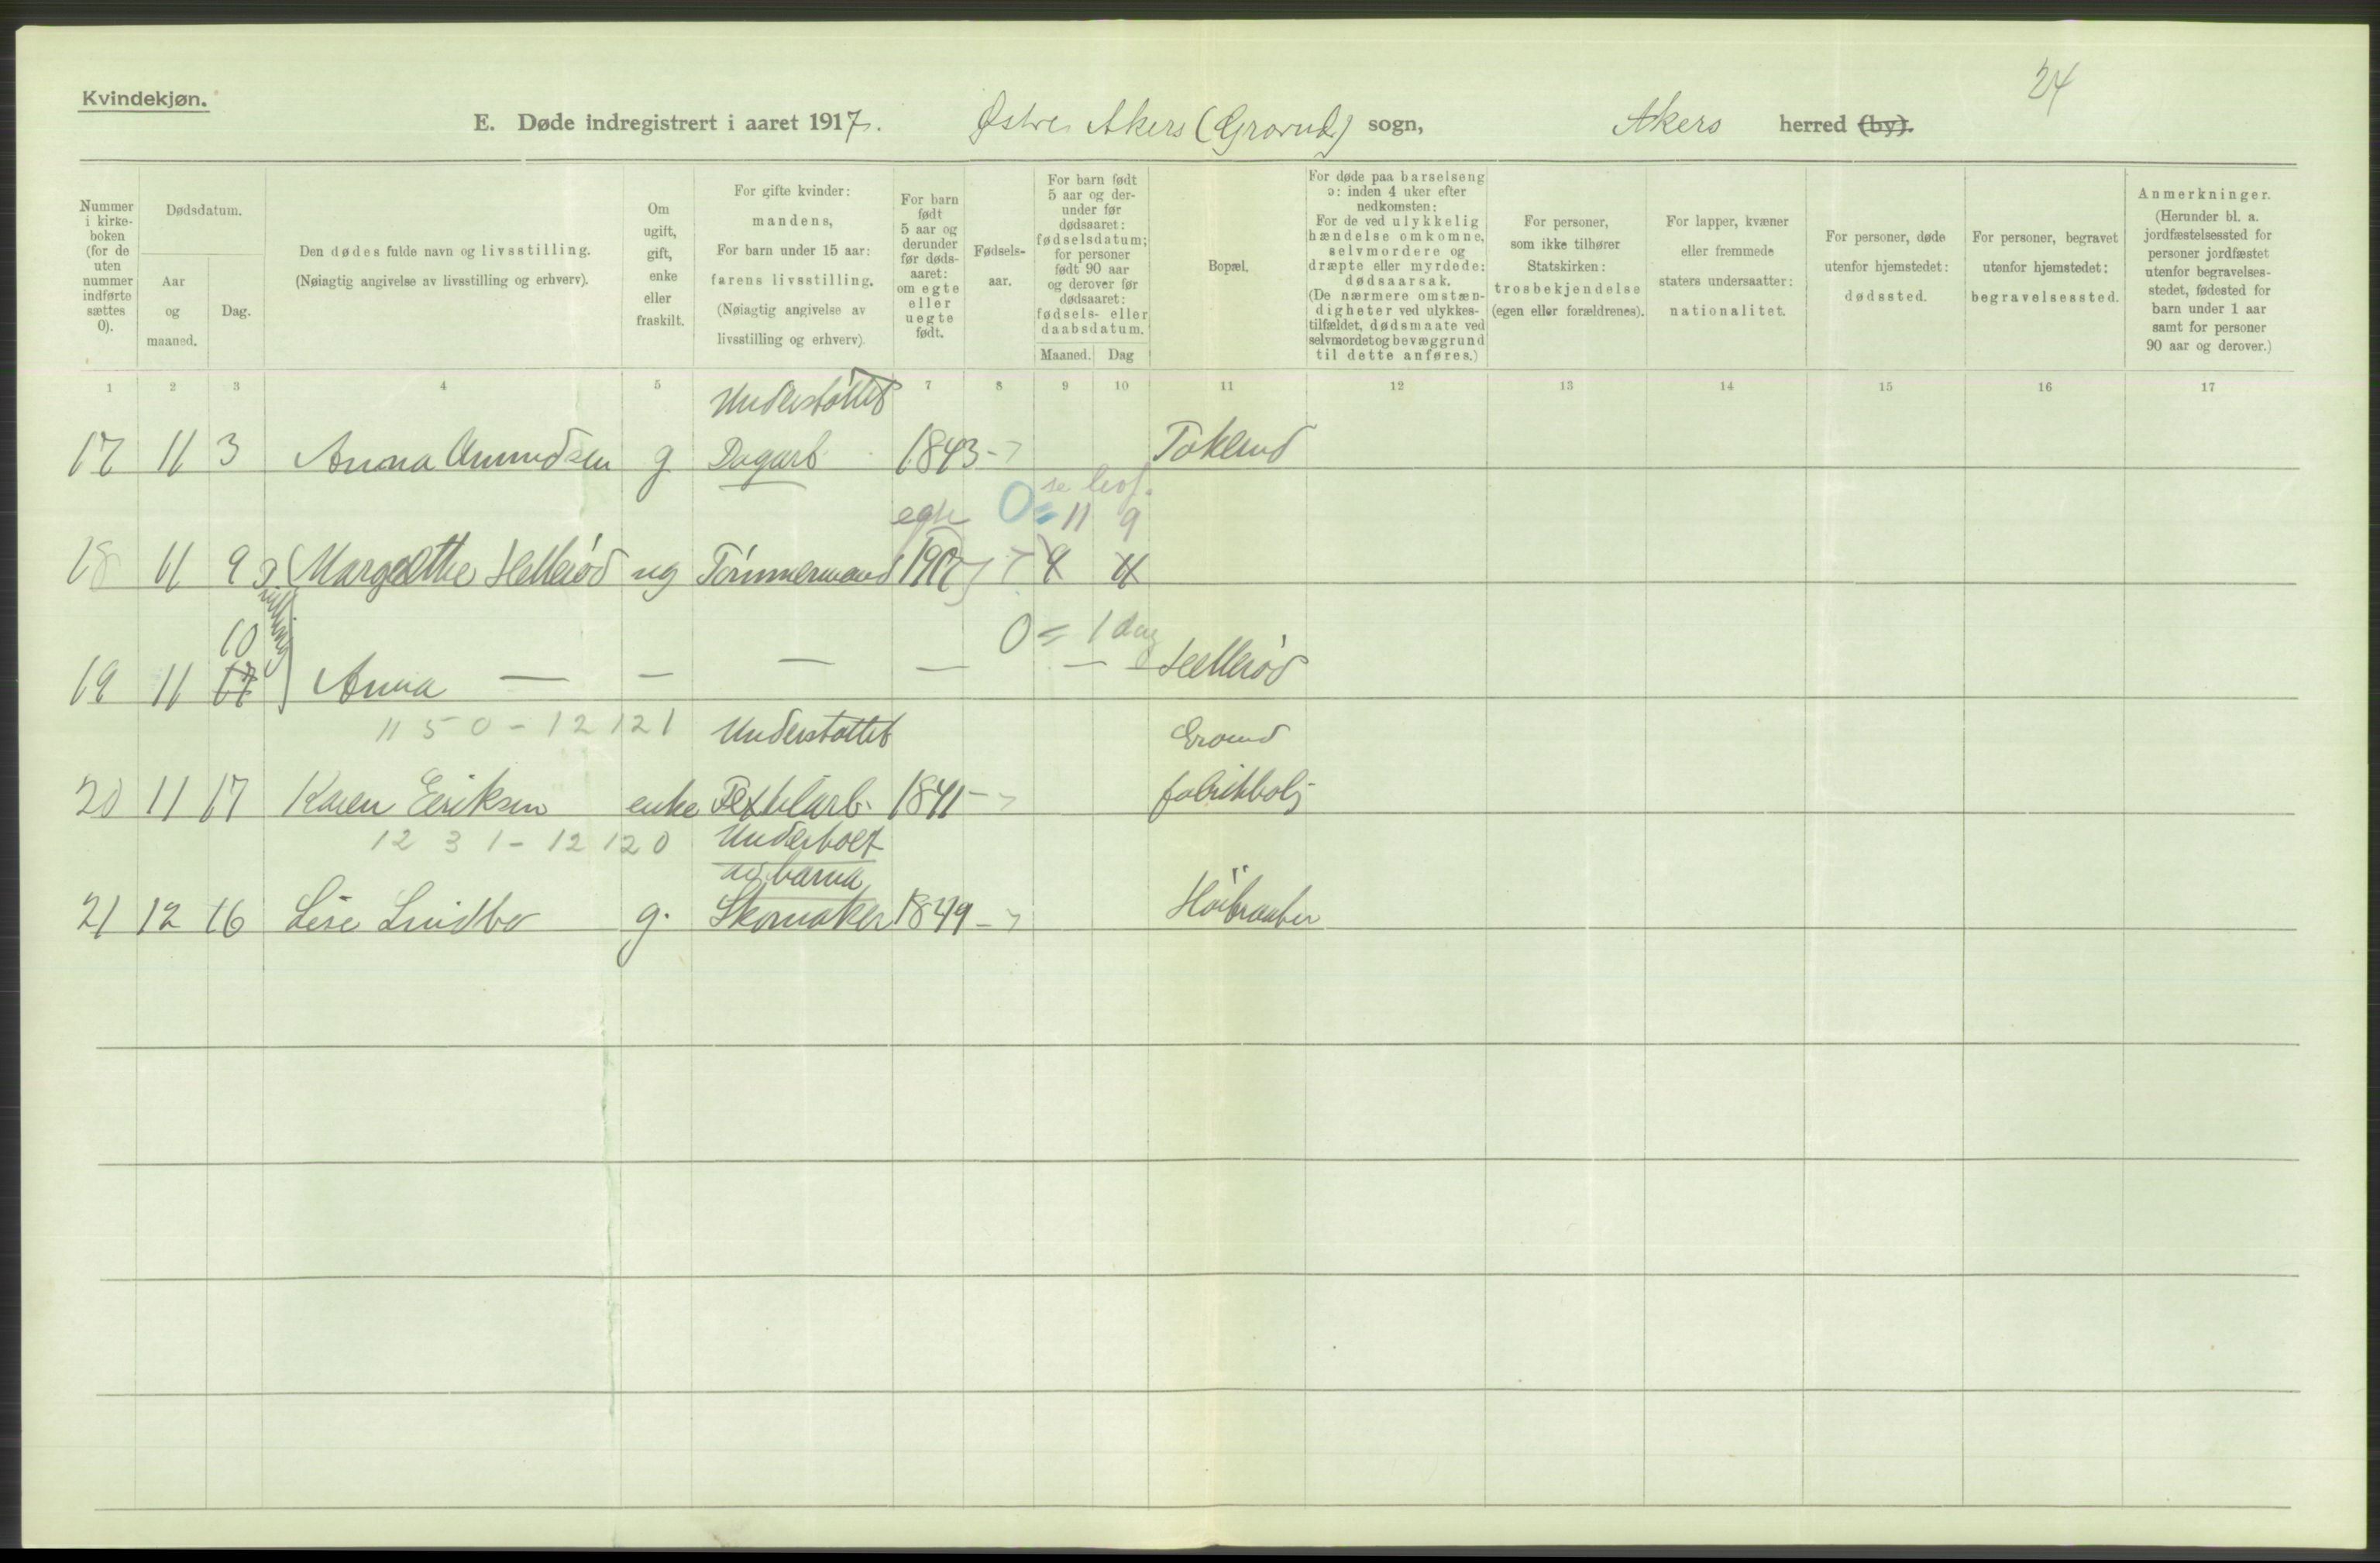 Kvindekjøn.
24
E. Døde indregistrert i aaret 1917. Østre Akers (Grorud) sogn, Akers herred (by).
Nummer i kirkeboken (for de uten nummer indførte sættes 0).
Dødsdatum.
Aar og maaned.
Dag.
Den dødes fulde navn og livsstilling.
(Nøiagtig angivelse av livsstilling og erhverv).
Om ugift, gift, enke eller fraskilt.
For gifte kvinder: mandens,
For barn under 15 aar: farens livsstilling.
(Nøiagtig angivelse av livsstilling og erhverv).
For barn født 5 aar og derunder før dødsaaret: om egte eller uegte født.
Fødselsaar.
For barn født 5 aar og derunder før dødsaaret: fødselsdatum; for personer født 90 aar og derover før dødsaaret: fødsels- eller daabsdatum.
Maaned. Dag
Bopæl.
For døde paa barselseng ɔ: inden 4 uker efter nedkomsten:
For de ved ulykkelig hændelse omkomne, selvmordere og dræpte eller myrdede: dødsaarsak.
(De nærmere omstændigheter ved ulykkestilfældet, dødsmaate ved selvmordet og bevæggrund til dette anføres.)
For personer, som ikke tilhører Statskirken: trosbekjendelse (egen eller forældrenes).
For lapper, kvæner eller fremmede staters undersaatter: nationalitet.
For personer, døde utenfor hjemstedet: dødssted.
For personer, begravet utenfor hjemstedet: begravelsessted.
Anmerkninger.
(Herunder bl. a. jordfæstelsessted for personer jordfæstet utenfor begravelsesstedet, fødested for barn under 1 aar samt for personer 90 aar og derover.)
1 2 3 4 5 6 7 8 9 10 11 12 13 14 15 16 17
Understøttet
17 11 3 Anna Amundsen g Dagarb. 1843 - Tokerud
se levf.
egte 0 = 11 9
18 11 9 Margrethe Hellerød ug Tømmermand 1917
0 = 1 dag
10
19 11 17 Anna — — — — — Hellerød
11 5 0 - 12 12 1 Understøttet Grorud
20 11 17 Karen Eriksen enke Textilarb. 1841 - fabrikbolj
12 3 1 - 12 12 0 Underholt
av barna
21 12 16 Lise Lindbo g. Skomaker 1849 - Høibraaten